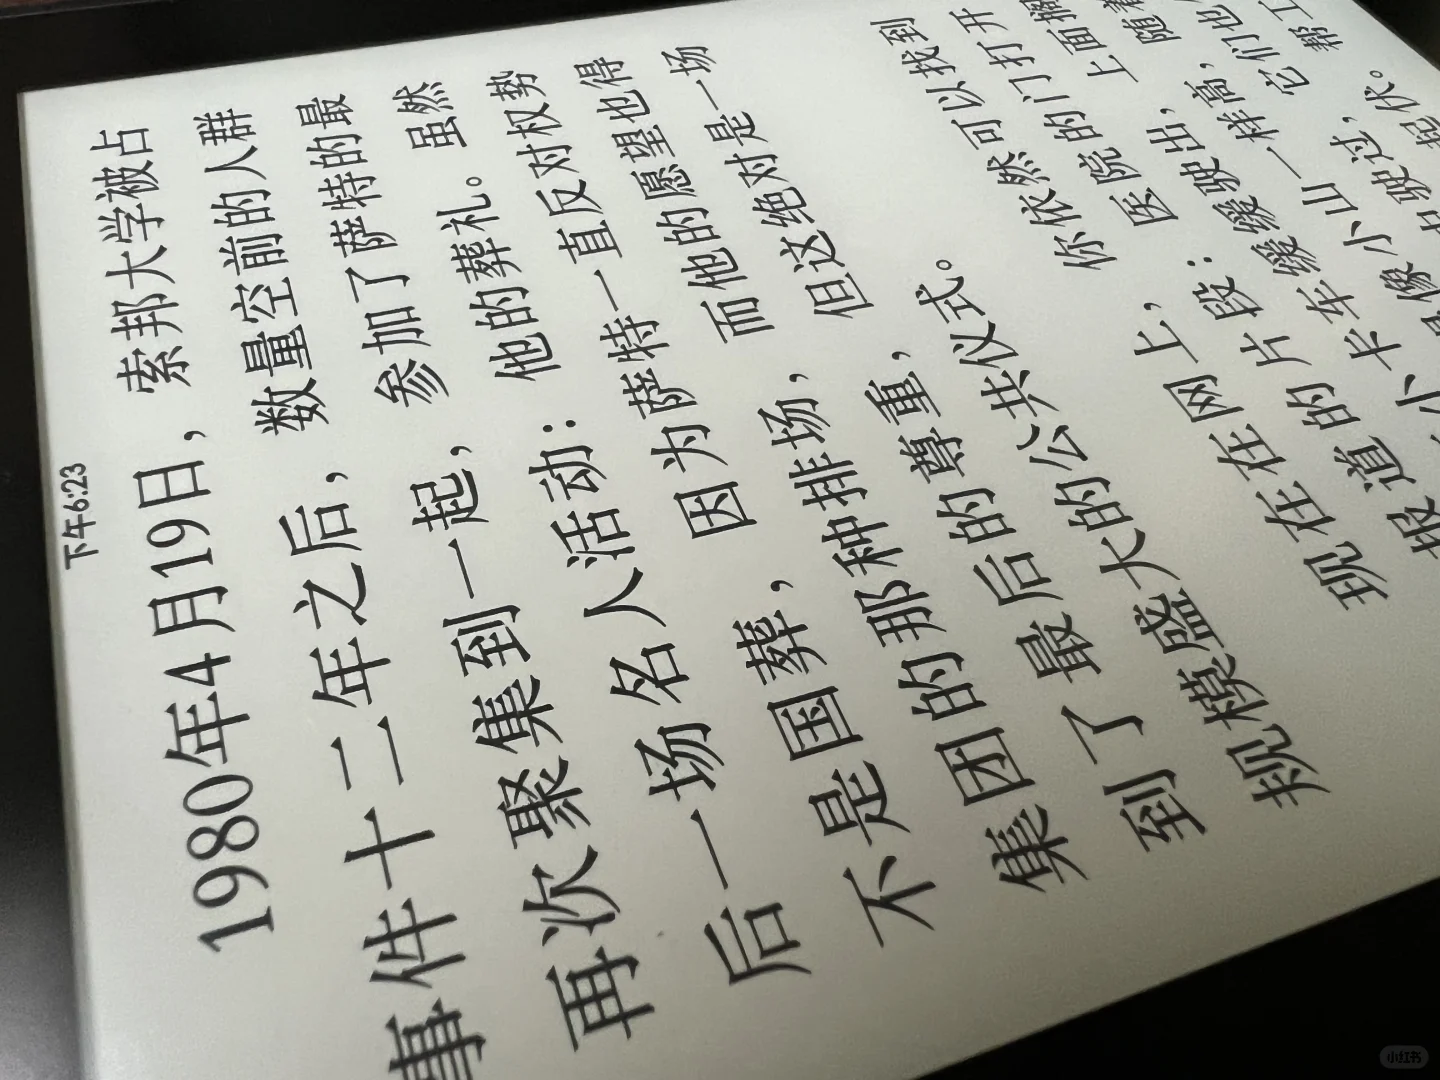 下午6:23
1980年4月19日，索邦大学被占
事件十二年之后，数量空前的人群
再次聚集到一起，参加了萨特的最
后一场名人活动：他的葬礼。虽然
不是国葬，因为萨特一直反对权势
集团的那种排场，而他的愿望也得
到了最后的尊重，但这绝对是一场
规模盛大的公共仪式。
现在在网上，你依然可以找到
报道的片段：医院的门打开
小卡车缓缓驶出，上面摆
像小山一样高，随着
驶过，它们也
起伏。帮工
小红书